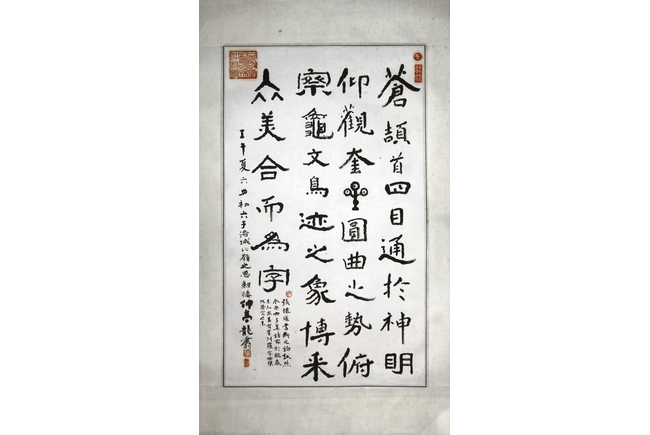 蒼頡首四目通於神明
仰觀奎星圓曲之勢俯
察龜文鳥迹之象博采
众美合而為字
張懷瓘書斷之論
壬午夏六月初六于洛城